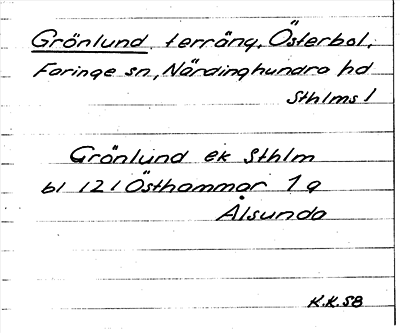 Grönlund, terräng, Österbol,
Faringe sn, Närdinghundra hd
Sthlms l
Grönlund ek Sthlm
bl 121 Östhammar 1 g
Ålsunda
K.K. 58